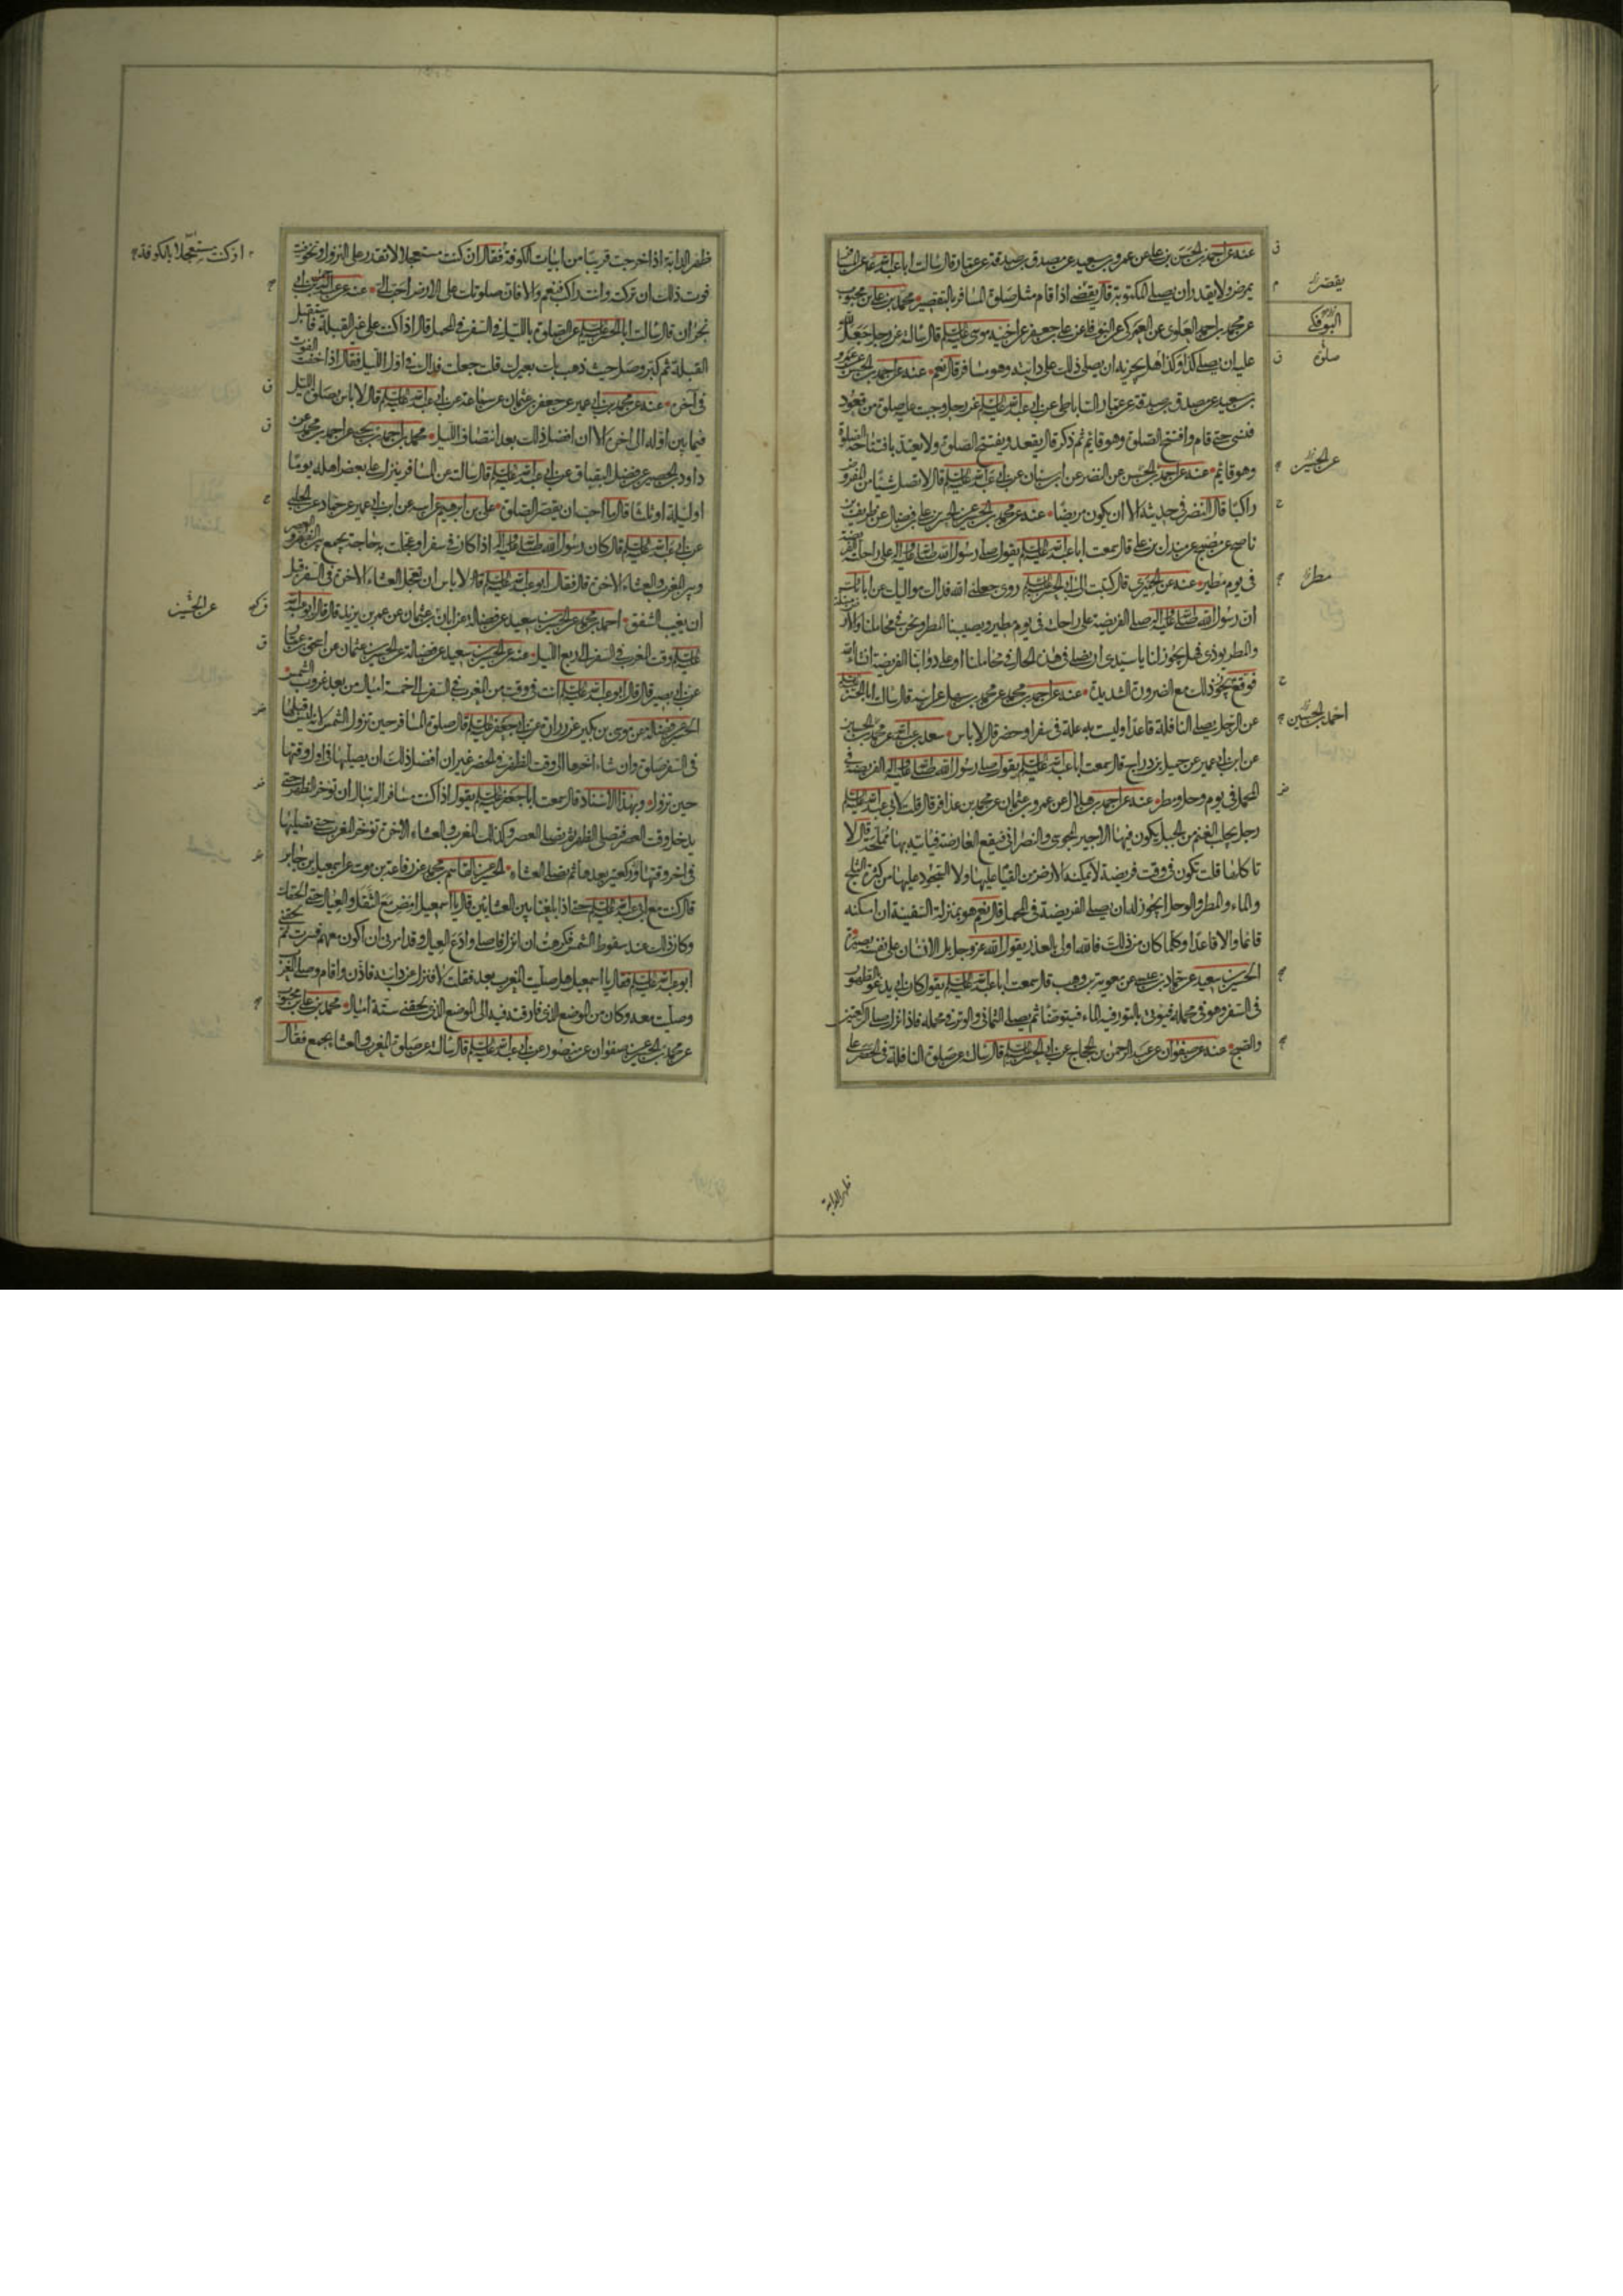 عنه عن احمد بن الحسن بن علي عن عمرو بن سعيد عن مصدق بن صدقة عن عمار قال سالت ابا عبد الله ع عن المسافر
يمرض ولا يقدر ان يصلي المكتوبة قال يقضي اذا قام مثل صلوة المسافر بالتقصير محمد بن علي بن محبوب
عن محمد بن احمد العلوي عن العمركي عن البوفكي عن علي بن جعفر عن اخيه موسى عليه السلم قال سالته عن رجل جعل لله
عليه ان يصلي كذا وكذا هل يجزيه ان يصلي ذلك على دابته وهو مسافر قال نعم عنه عن احمد بن الحسن عن عمرو
بن سعيد عن مصدق بن صدقة عن عمار الساباطي عن ابي عبد الله عليه السلم عن رجل وجبت عليه صلوة من قعود
فنسي حتى قام وافتتح الصلوة وهو قائم ثم ذكر قال يقعد ويفتتح الصلوة ولا يعتد بافتتاحه الصلوة
وهو قائم عنه عن احمد بن الحسن عن النضر عن ابن سنان عن ابي عبد الله عليه السلم قال لا تصل شيئا من المفروض
راكبا قال النضر في حديثه الا ان يكون مريضا عنه عن محمد بن الحسين عن الحسن بن علي بن فضال عن ظريف بن
ناصح عن مصبح عن مندل بن علي قال سمعت ابا عبد الله عليه السلم يقول صلى رسول الله صلى الله عليه واله على راحلته الفريضة
في يوم مطير عنه عن الحميري قال كتبت الى ابي الحسن عليه السلم روى جعلني الله فداك مواليك عن ابائك
ان رسول الله صلى الله عليه واله صلى الفريضة على راحلته في يوم مطير ويصيبنا المطر ونحن في محاملنا والارض مبتلة
والمطر يوذي فهل يجوز لنا يا سيدي ان نصلي في هذه الحال في محاملنا او على دوابنا الفريضة ان شاء الله
فوقع يجوز ذلك مع الضرورة الشديدة عنه عن احمد بن محمد عن محمد بن سهل عن ابيه قال سالت ابا الحسن عليه السلم
عن الرجل يصلي النافلة قاعدا وليست به علة في سفر او حضر قال لا باس سعد بن عبد الله عن محمد بن الحسين
عن ابن ابي عمير عن جميل بن دراج قال سمعت ابا عبد الله عليه السلم يقول صلى رسول الله صلى الله عليه واله الفريضة في
المحمل في يوم وحل ومطر عنه عن احمد بن هلال عن عمرو بن عثمان عن محمد بن عذافر قال قلت لابي عبد الله عليه السلم
رجل يجلب الغنم من الجبل يكون فيها الاجير المجوسي والنصراني فيقع العارضة فياتيه بها مملحة قال لا
تاكلها قلت تكون في وقت فريضة لا يمكنه الارض من القيام عليها ولا السجود عليها من كثرة الثلج
والماء والمطر والوحل ايجوز له ان يصلي الفريضة في المحمل قال نعم هو بمنزلة السفينة ان امكنه
قائما والا قاعدا وكلما كان من ذلك فالله اولى بالعذر يقول الله عز وجل بل الانسان على نفسه بصيرة
الحسين بن سعيد عن حماد بن عيسى عن معوية بن وهب قال سمعت ابا عبد الله عليه السلم يقول كان ابي يدعو بالطهور
في السفر وهو في محمله فيوتى بالتور فيه الماء فيتوضا ثم يصلي الثماني والوتر في محمله فاذا نزل صلى الركعتين
والصبح عنه عن صفوان عن عبد الرحمن بن الحجاج عن ابي الحسن عليه السلم قال سالته عن صلوة النافلة في الحضر على
يقصر
البوفكي
صلوة
عن الحسين
مطر
احمد بن الحسين
ظهر الدابة
ظهر الدابة اذا خرجت قريبا من ابيات الكوفة فقال ان كنت مستعجلا لا تقدر على النزول وتخوفت
فوت ذلك ان تركته وانت راكب فنعم والا فان صلوتك على الارض احب الي عنه عن عبد الرحمن بن ابي
نجران قال سالت ابا الحسن عليه السلم عن الصلوة بالليل في السفر في المحمل قال اذا كنت على غير القبلة فاستقبل
القبلة ثم كبر وصل حيث ذهب بك بعيرك قلت جعلت فداك في اول الليل فقال اذا خفت الفوت
في اخره عنه عن محمد بن ابي عمير عن جعفر بن عثمان عن سماعة عن ابي عبد الله عليه السلم قال لا باس بصلوة الليل
فيما بين اوله الى اخره الا ان افضل ذلك بعد انتصاف الليل محمد بن احمد بن يحيى عن احمد بن محمد عن
داود بن الحصين عن فضل البقباق عن ابي عبد الله عليه السلم قال سالته عن المسافر ينزل على بعض اهله يوما
او ليلة او ثلثا قال ما احب ان يقصر الصلوة علي بن ابرهيم عن ابيه عن ابن ابي عمير عن حماد عن الحلبي
عن ابي عبد الله عليه السلم قال كان رسول الله صلى الله عليه واله اذا كان في سفر او عجلت به حاجة يجمع بين الظهر والعصر
وبين المغرب والعشاء الاخرة قال فقال ابو عبد الله عليه السلم قال لا باس ان تعجل العشاء الاخرة في السفر قبل
ان يغيب الشفق احمد بن محمد عن الحسين بن سعيد عن فضالة عن ابان بن عثمان عن عمر بن يزيد قال قال ابو عبد الله
عليه السلم وقت المغرب في السفر الى ربع الليل عنه عن الحسين بن سعيد عن فضالة عن الحسين بن عثمان عن اسحق بن عمار
عن ابي بصير قال قال ابو عبد الله عليه السلم انت في وقت من المغرب في السفر الى خمسة اميال من بعد غروب الشمس
الحسين عن فضالة عن موسى بن بكير عن زرارة عن ابي جعفر عليه السلم قال صلوة المسافر حين تزول الشمس لانه ليس قبلها
في السفر صلوة وان شاء اخرها الى وقت الظهر في الحضر غير ان افضل ذلك ان يصليها في اول وقتها
حين تزول وبهذا الاسناد قال سمعت ابا جعفر عليه السلم يقول اذا كنت مسافرا لم تبال ان توخر الظهر حتى
يدخل وقت العصر فتصلي الظهر ثم تصلي العصر وكذلك المغرب والعشاء الاخرة توخر المغرب حتى تصليها
في اخر وقتها وركعتين بعدها ثم تصلي العشاء الحسين عن القاسم بن محمد عن رفاعة بن موسى عن اسمعيل بن جابر
قال كنت مع ابي عبد الله عليه السلم حتى اذا بلغنا بين العشائين قال يا اسمعيل امض مع الثقل والعيال حتى الحقك
وكان ذلك عند سقوط الشمس فكرهت ان انزل فاصلي وادع العيال وقد امرني ان اكون معهم فسرت ثم لحقني
ابو عبد الله عليه السلم فقال يا اسمعيل هل صليت المغرب بعد فقلت لا فنزل عن دابته فاذن واقام وصلى المغرب
وصليت معه وكان من الموضع الذي فارقته فيه الى الموضع الذي لحقني ستة اميال محمد بن علي بن محبوب
عن محمد بن الحسين عن صفوان عن منصور عن ابي عبد الله عليه السلم قال سالته عن صلوة المغرب والعشاء بجمع فقال
اذ كنت مستعجلا بالكوفة
عن الحسين